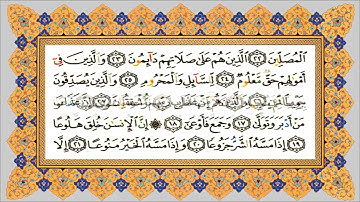 ٱلْمُصَلِّينَ ٢٢ ٱلَّذِينَ هُمْ عَلَىٰ صَلَاتِهِمْ دَآئِمُونَ ٢٣ وَٱلَّذِينَ فِىٓ
أَمْوَٰلِهِمْ حَقٌّ مَّعْلُومٌ ٢٤ لِّلسَّآئِلِ وَٱلْمَحْرُومِ ٢٥ وَٱلَّذِينَ يُصَدِّقُونَ
مَنْ أَدْبَرَ وَتَوَلَّىٰ ١٧ وَجَمَعَ فَأَوْعَىٰٓ ١٨ إِنَّ ٱلْإِنسَٰنَ خُلِقَ هَلُوعًا
١٩ إِذَا مَسَّهُ ٱلشَّرُّ جَزُوعًا ٢٠ وَإِذَا مَسَّهُ ٱلْخَيْرُ مَنُوعًا ٢١ إِلَّا